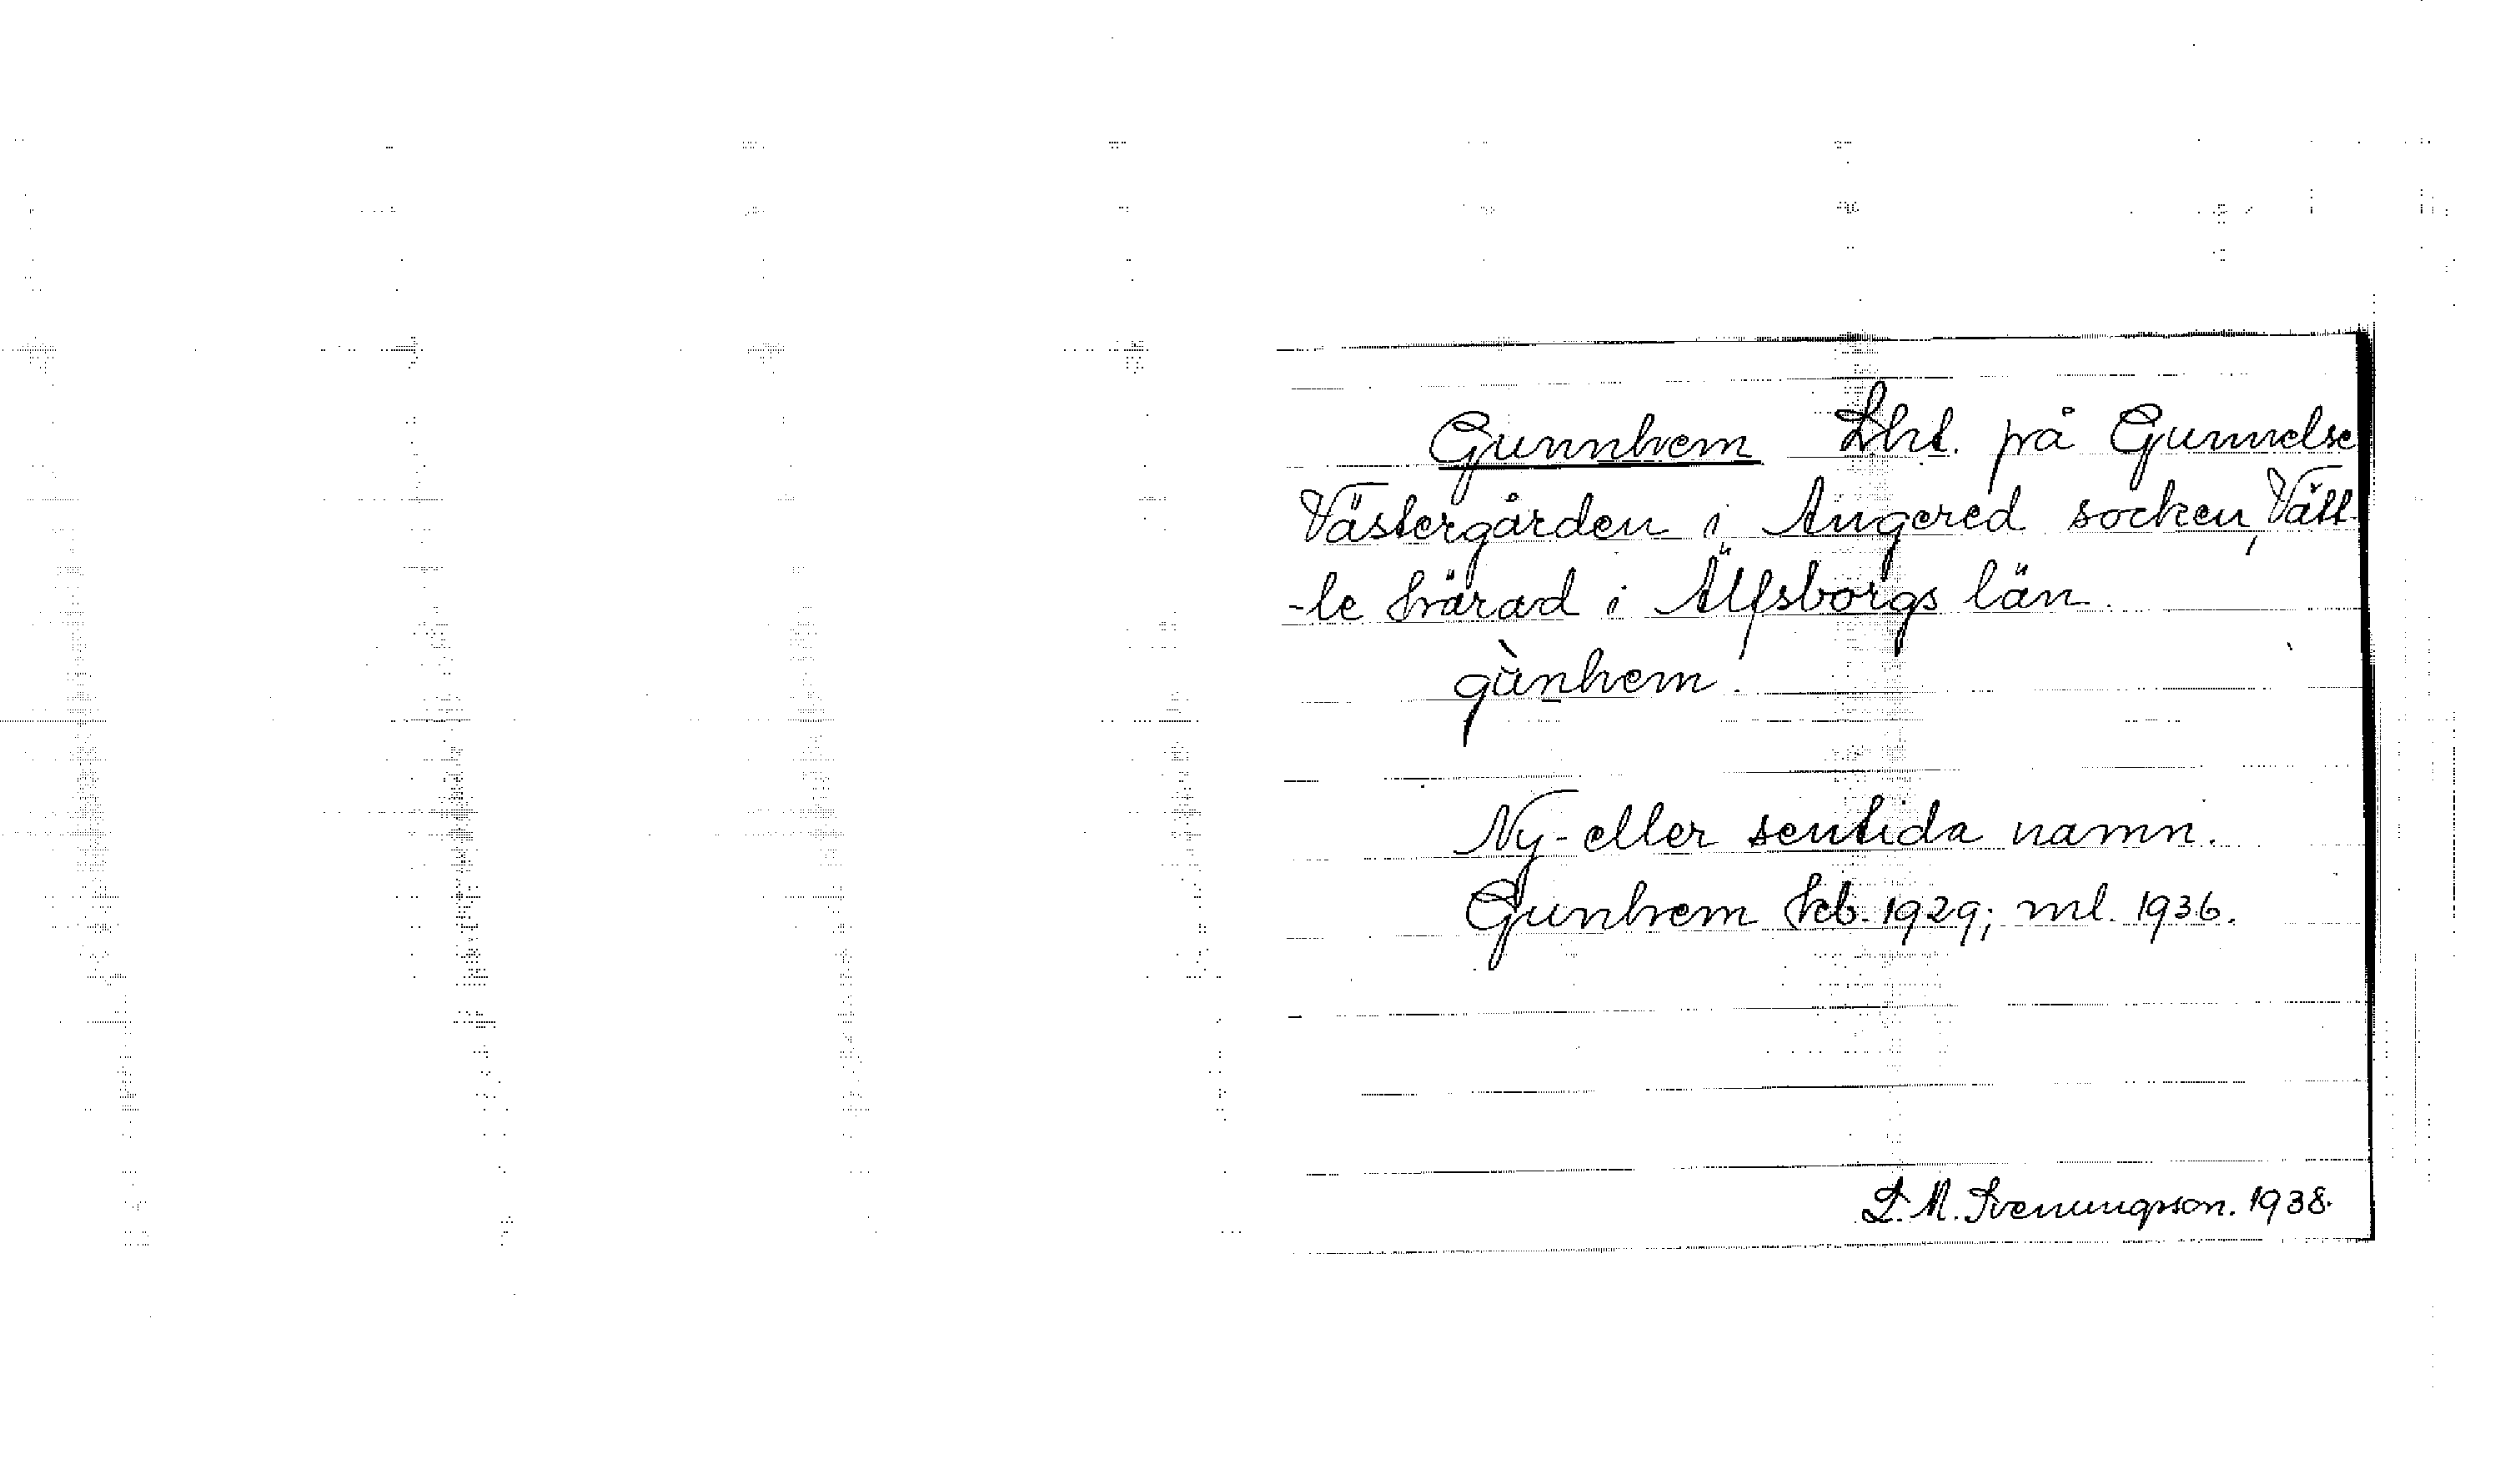 Gunnhem Lht. på Gunnelse
Västergården i Angered socken, Vätt-
-le härad i Älfsborgs län.
gùnhem.
Ny- eller sentida namn.
Gunhem kb. 1929; ml. 1936.
L. M. Svenungsson. 1938.